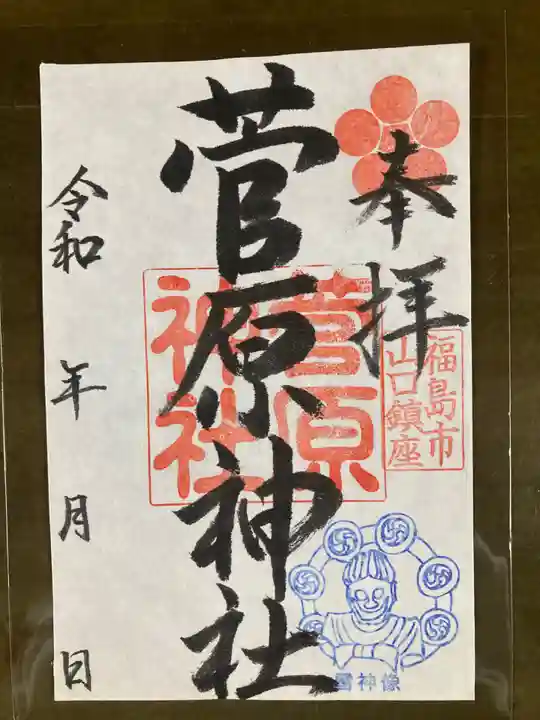 奉拝
福島市
山口鎮座
菅原神社
菅原
神社
雷神像
令和 年 月 日